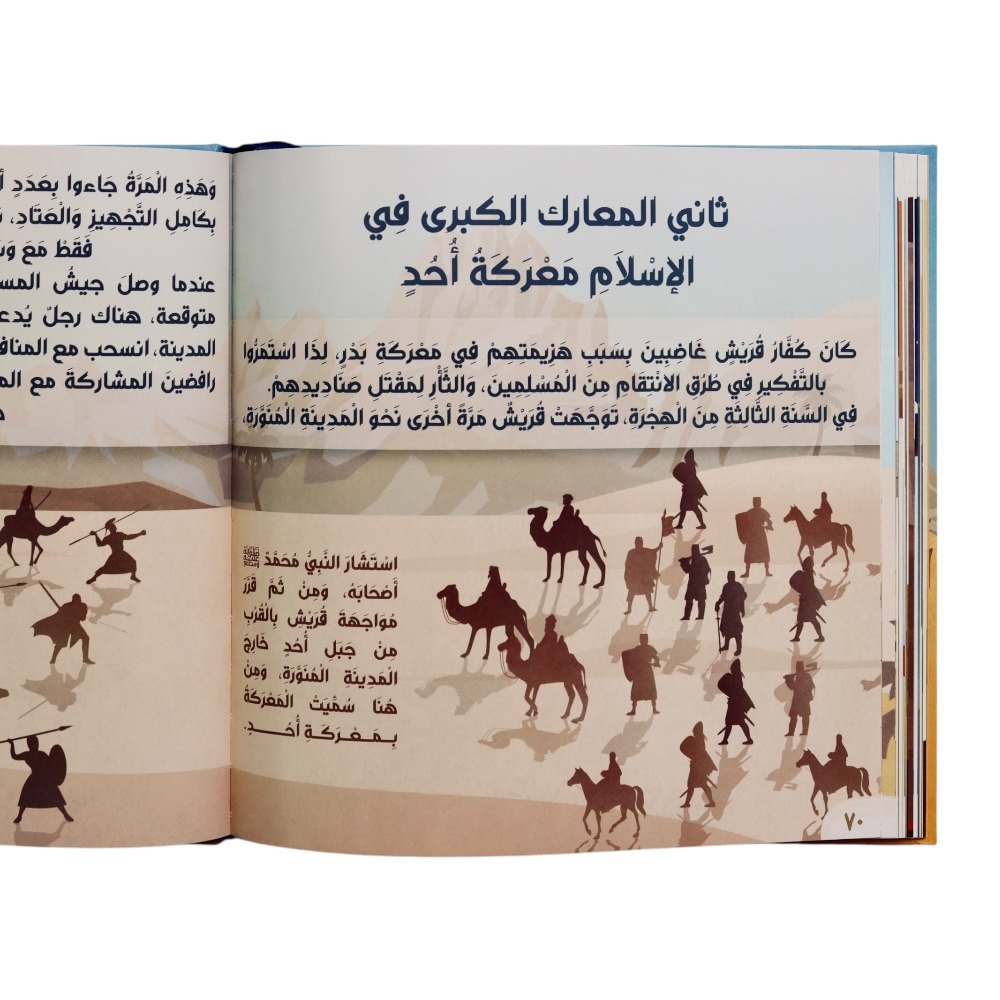 ثاني المعارك الكبرى فِي
الإسْلَامِ مَعْرَكَةُ أُحُدٍ
كَانَ كُفَّارُ قُرَيْشٍ غَاضِبِينَ بِسَبَبِ هَزِيمَتِهِمْ فِي مَعْرَكَةِ بَدْرٍ، لِذَا اسْتَمَرُّوا
بالتَّفْكِيرِ فِي طُرُقِ الانْتِقَامِ مِنَ الْمُسْلِمِينَ، وَالثَّأْرِ لِمَقْتَلِ صَنَادِيدِهِمْ.
فِي السَّنَةِ الثَّالِثَةِ مِنَ الْهِجْرَةِ، تَوَجَّهَتْ قُرَيْشٌ مَرَّةً أُخْرَى نَحْوَ الْمَدِينَةِ الْمُنَوَّرَةِ،
اسْتَشَارَ النَّبِيُّ مُحَمَّدٌ ﷺ
أَصْحَابَهُ، وَمِنْ ثَمَّ قَرَّرَ
مُوَاجَهَةَ قُرَيْشٍ بِالْقُرْبِ
مِنْ جَبَلِ أُحُدٍ خَارِجَ
الْمَدِينَةِ الْمُنَوَّرَةِ، وَمِنْ
هُنَا سُمِّيَتْ الْمَعْرَكَةُ
بِمَعْرَكَةِ أُحُدٍ.
٧٠
وَهَذِهِ الْمَرَّةُ جَاءوا بِعَدَدٍ
بِكَامِلِ التَّجْهِيزِ وَالْعَتَادِ،
فَقَطْ مَعَ
عندما وصلَ جيشُ
متوقعة، هناك رجلٌ
المدينة، انسحب مع
رافضينَ المشاركةَ مع